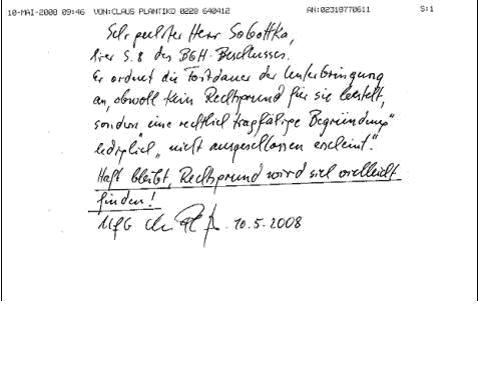 10-MAI-2008 09:46 VON:CLAUS PLANTIKO 0228 640412 AN:02319770611 S:1
Sehr geehrter Herr Sobottka,
hier S. 8 des BGH-Beschlusses.
Er ordnet die Fortdauer der Unterbringung
an, obwohl kein Rechtsgrund für sie besteht,
sondern eine rechtlich tragfähige Begründung"
lediglich „nicht ausgeschlossen erscheint".
Haft bleibt, Rechtsgrund wird sich vielleicht
finden!
MfG 10.5.2008